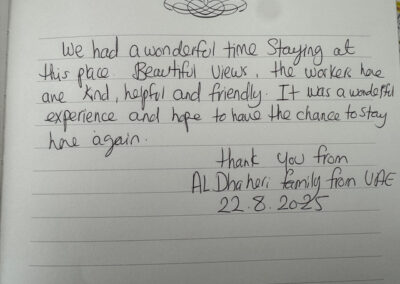 We had a wonderful time Staying at
this place. Beautiful views, the workers here
are kind, helpful and friendly. It was a wonderful
experience and hope to have the chance to stay
here again.
thank you from
AL Dhaheri family from UAE
22.8.2025